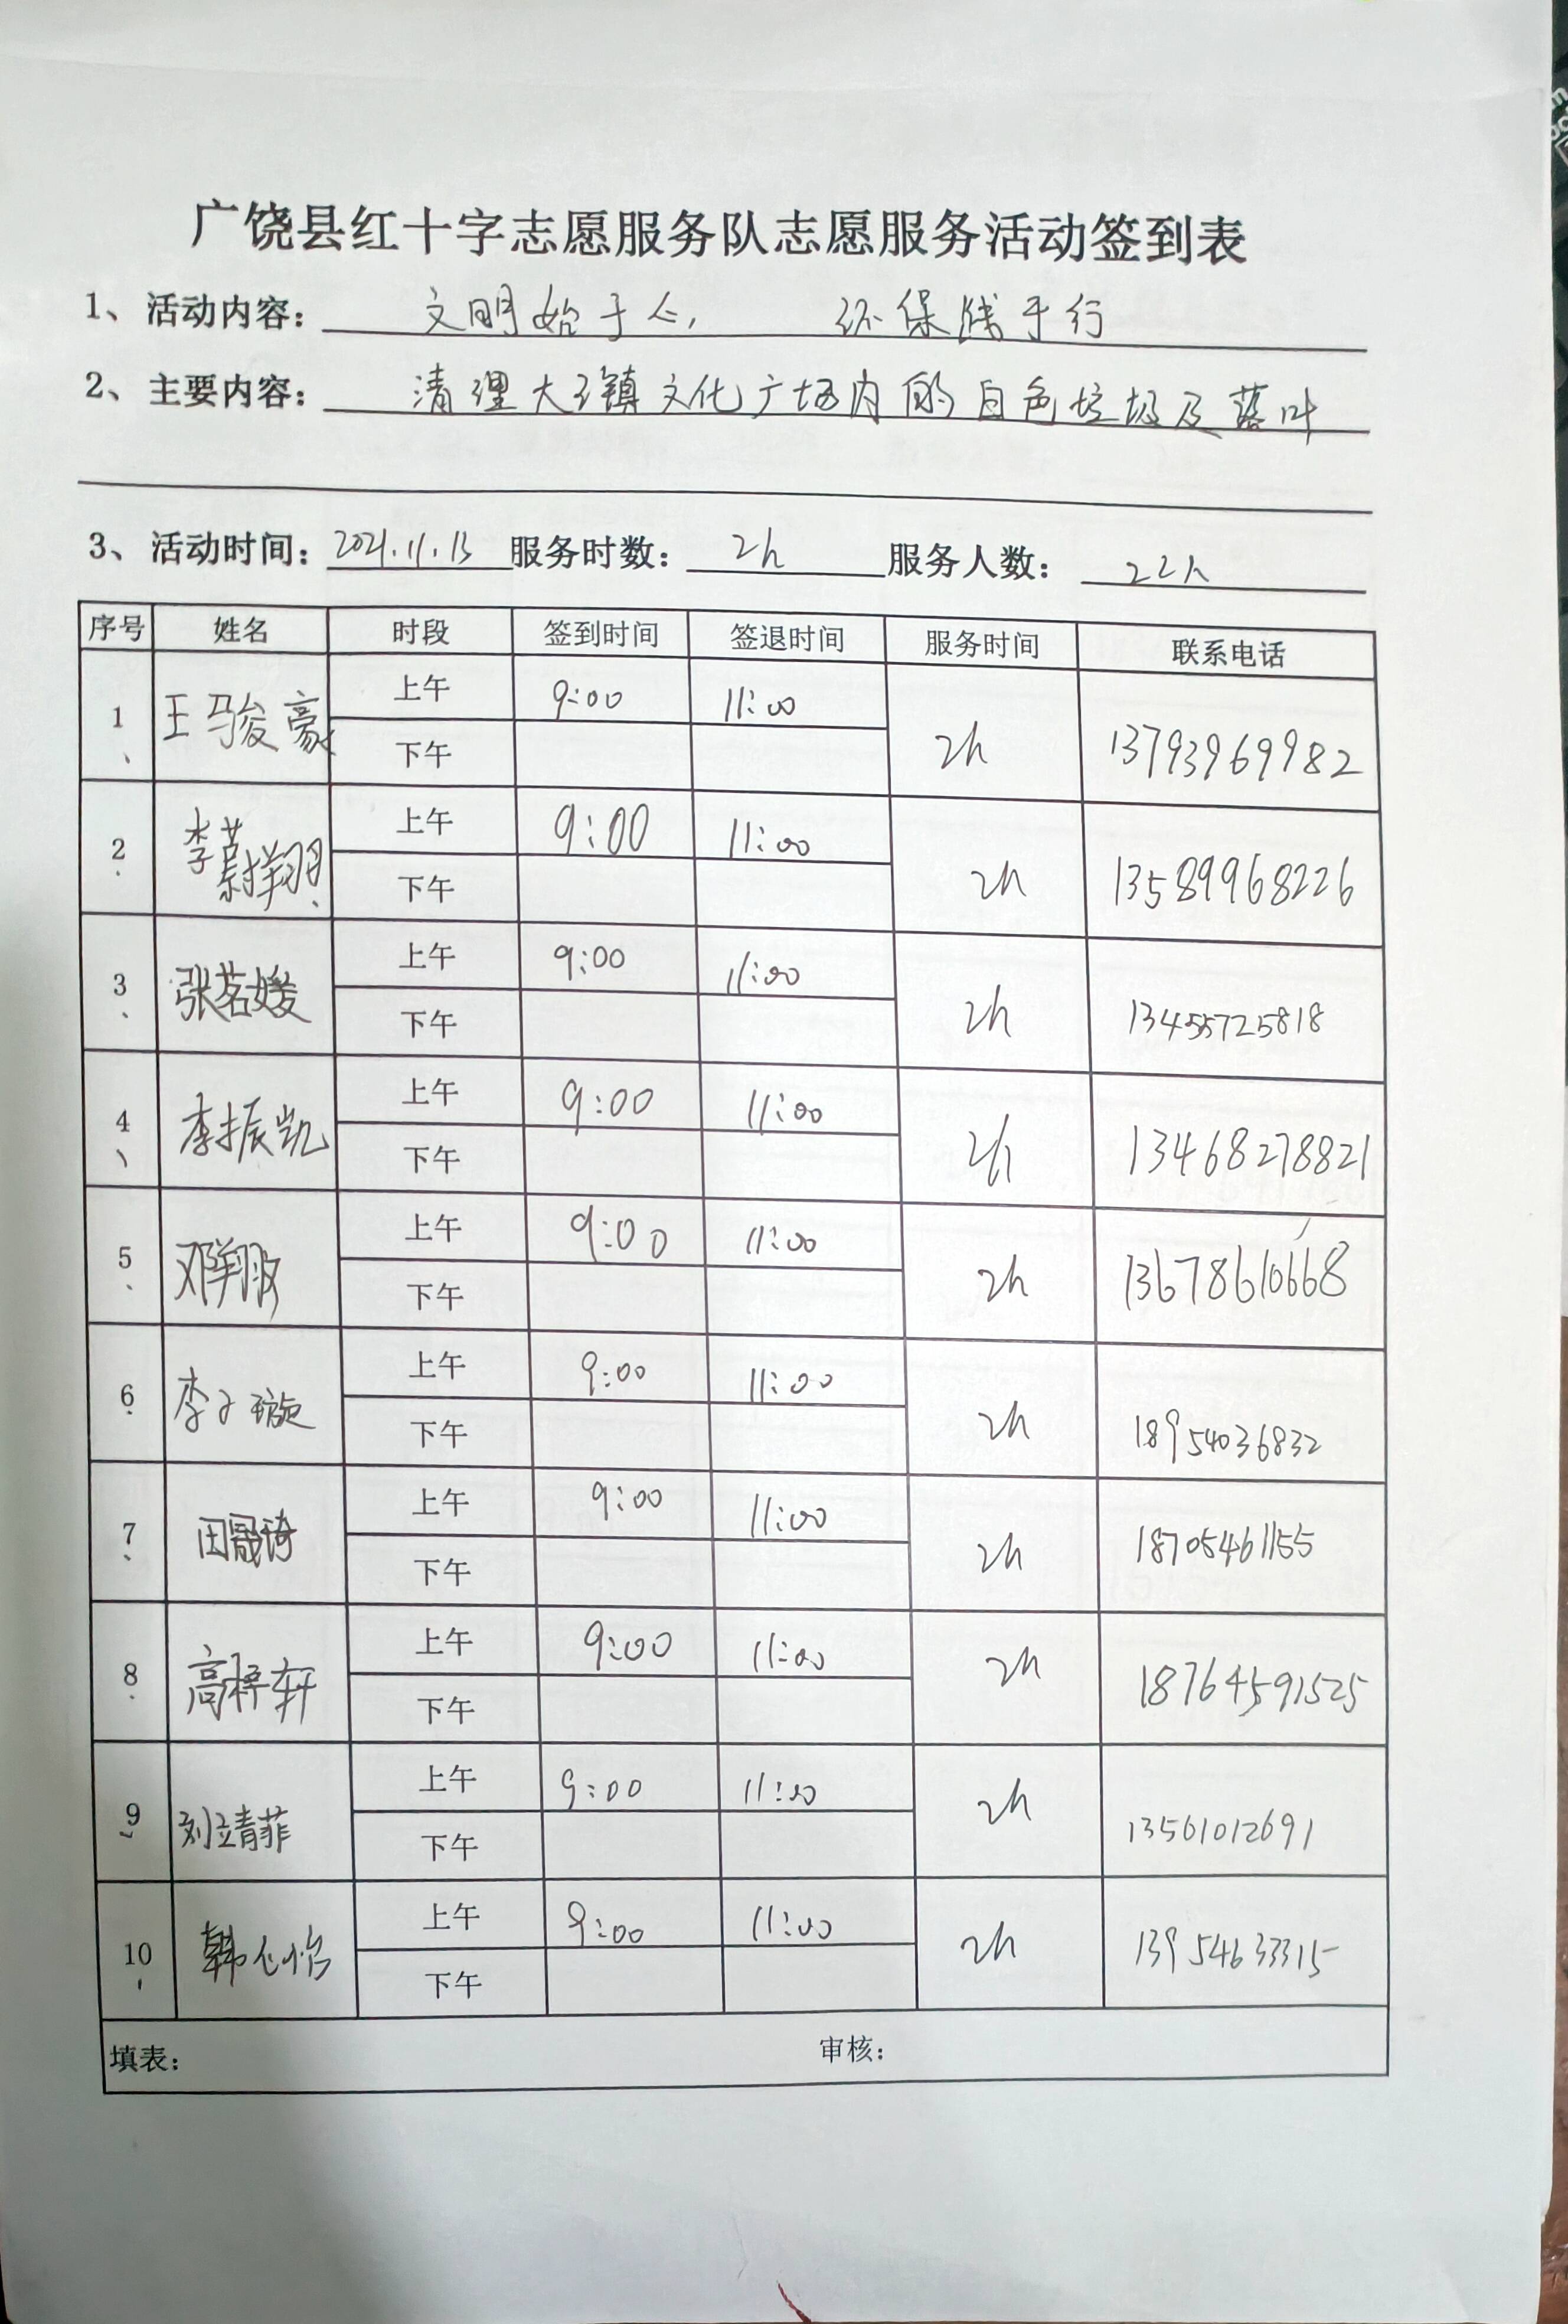 广饶县红十字志愿服务队志愿服务活动签到表
1、活动内容：文明始于心， 环保践于行
2、主要内容：清理大王镇文化广场内的白色垃圾及落叶
3、活动时间：2021.11.13 服务时数：2h 服务人数：22人
序号 姓名 时段 签到时间 签退时间 服务时间 联系电话
1 王骏豪 上午 9:00 11:00 2h 13793969982
下午
2 李蔚翔 上午 9:00 11:00 2h 13589968226
下午
3 张茗媛 上午 9:00 11:00 2h 13455725818
下午
4 李振凯 上午 9:00 11:00 2h 13468278821
下午
5 邓翔 上午 9:00 11:00 2h 13678610668
下午
6 李子璇 上午 9:00 11:00 2h 18954036832
下午
7 田晟琦 上午 9:00 11:00 2h 18705461155
下午
8 高梓轩 上午 9:00 11:00 2h 18764591525
下午
9 刘靖菲 上午 9:00 11:00 2h 13561012691
下午
10 韩心怡 上午 9:00 11:00 2h 13954633315
下午
填表： 审核：